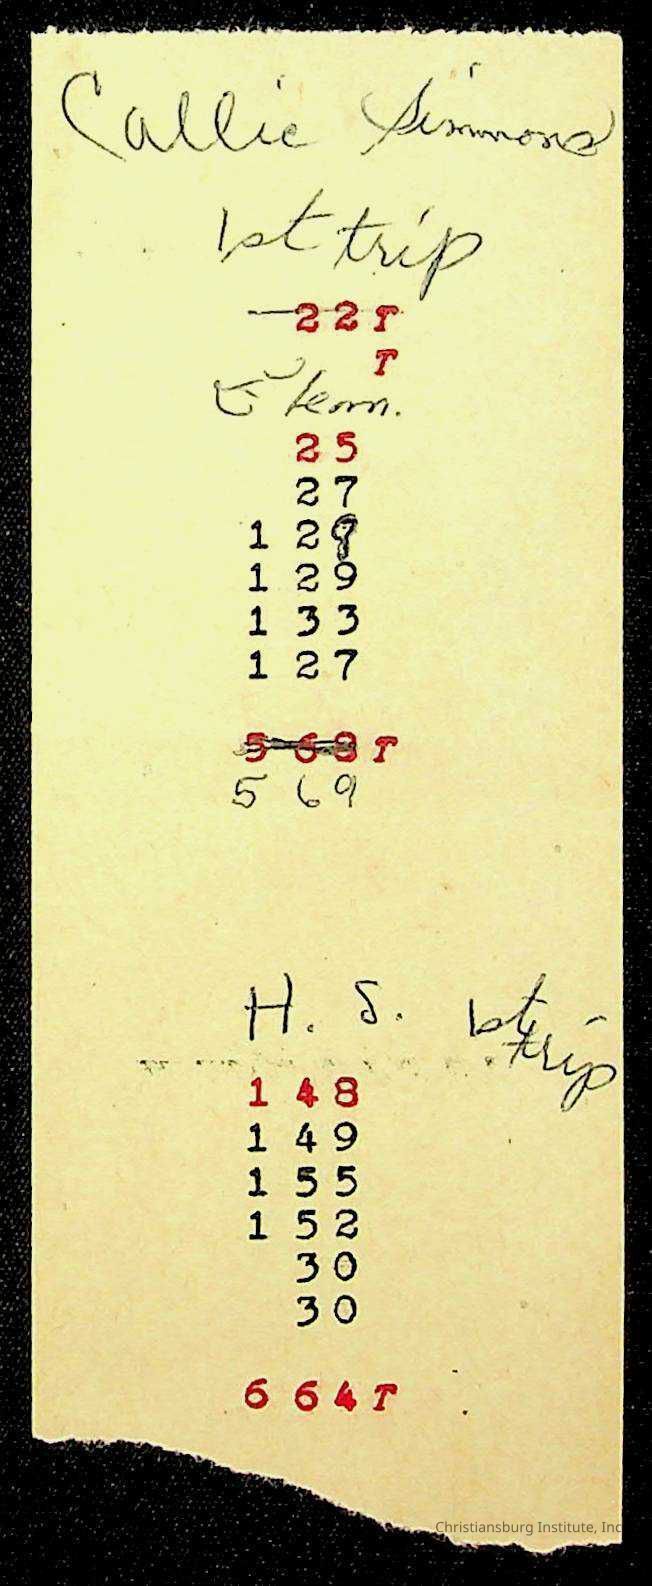 Callie Simmons
1st trip
22 r
r
Elem.
25
27
1 28
1 29
1 33
1 27
5 68 r
5 69
H. S. 1st trip
1 48
1 49
1 55
1 52
30
30
6 64 r
Christiansburg Institute, Inc